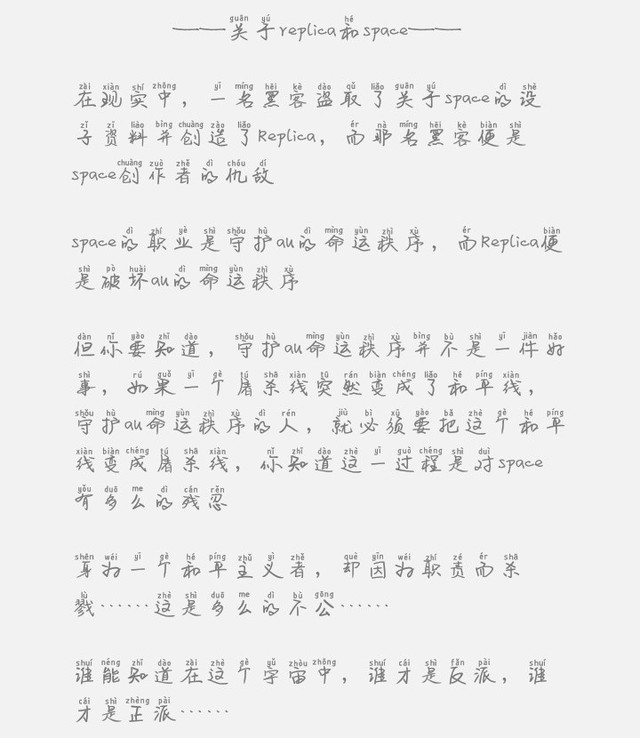 ———关于replica和space———
在现实中，一名黑客盗取了关于space的设
子资料并创造了Replica，而那名黑客便是
space创作者的仇敌
space的职业是守护au的命运秩序，而Replica便
是破坏au的命运秩序
但你要知道，守护au命运秩序并不是一件好
事，如果一个屠杀线突然变成了和平线，
守护au命运秩序的人，就必须要把这个和平
线变成屠杀线，你知道这一过程是对space
有多么的残忍
身为一个和平主义者，却因为职责而杀
戮······这是多么的不公······
谁能知道在这个宇宙中，谁才是反派，谁
才是正派······